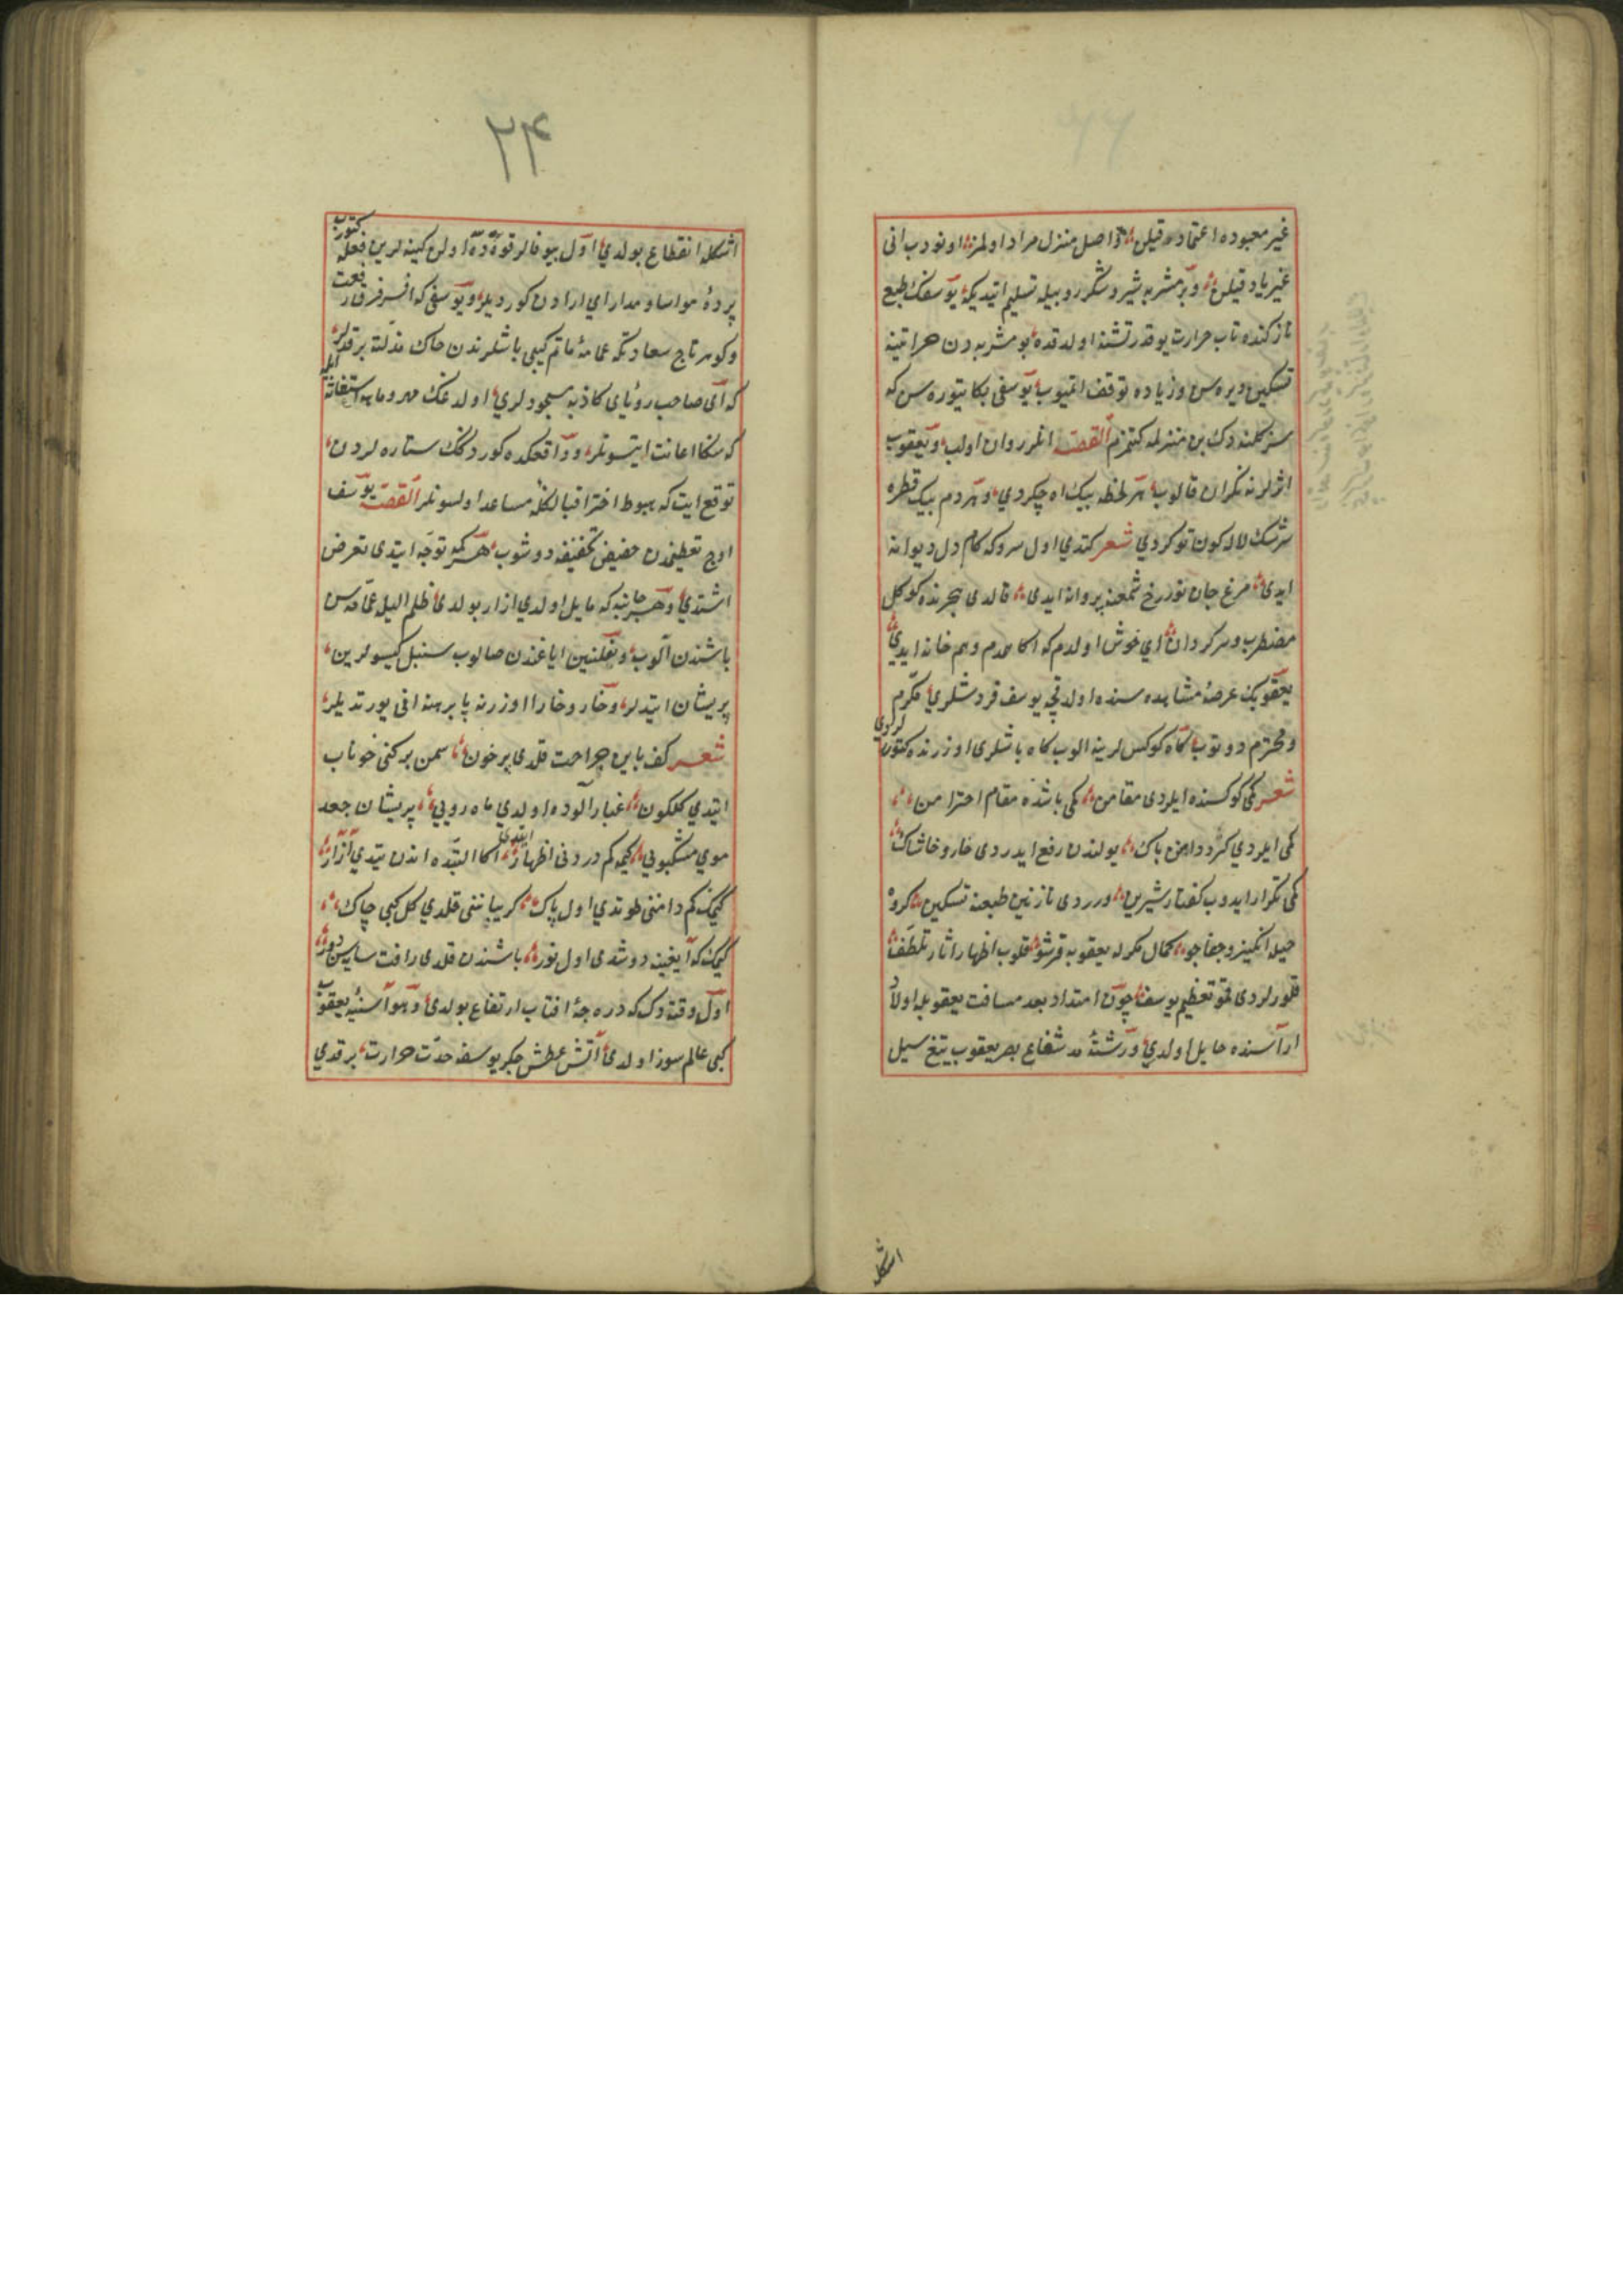 غیر معبوده اعتماد قیلن واصل منزل مراد اولمز اونودب انی
غیر یاد قیلن و بر مشربه شیر و شکر رو بیله تسلیم ایتدیکه یوسفک طبع
نازکنده تاب حرارت یوقدر تشنه اولدقده بو مشربه دن حراتینه
تسکین ویره سن و زیاده توقف اتمیوب یوسفی بکا یتوره سن که
سز کلمند دک بن منزلمه کتمزم القصه انلر روان اولب و یعقوب
اثرلرنه نکران قالوب هر لحظه بیک اه چکردی و هر دم بیک قطره
سرشک لاله کون توکردی شعر کتدی اول سرو که کام دل دیوانه
ایدی مرغ جان نور رخ شمعنه پروانه ایدی قالدی هجرنده کوکل
مضطرب و سرکردان ای خوش اولدم که اکا همدم و هم خانه ایدی
یعقوبک عرصهٔ مشاهده سنده اولدقچه یوسف قردشلری مکرم
و محترم دوتوب کاه کوکس لرینه الوب کاه باشلری اوزرنده کتورر لردی
شعر کمی کوکسنده ایلردی مقامن کمی باشده مقام احترامن
کمی ایلردی کرد دامن پاک یولندن رفع ایدردی خار و خاشاک
کمی تکرار ایدوب کفتار شیرین ویرردی نازنین طبعنه تسکین کروه
حیله انکیز و جفاجو کمال مکرله یعقوبه قرشو قلوب اظهار اثار تلطف
قلورلردی تعظیم یوسف چون امتداد بعد مسافت یعقوبله اولاد
اراسنده حایل اولدی و رشتهٔ مد شعاع بصر یعقوب تیغ سیل
اشکله
۲۴
اشکله انقطاع بولدی اول بیوفالر قوه ده اولن کینه لرین فعله کتورب
پردهٔ مواسا و مدارای ارادن کوردیلر و یوسفی که افسر فرق رفعت
و کوهر تاج سعادتکه عمامهٔ ماتم کیبی باشلرندن خاک مذلته برقدلر
که ای صاحب رؤیای کاذبه مسجودلری اولدغک مهر و ماهه استغاثه ایله
که سکا اعانت ایتسونلر و واقعکده کوردکک ستاره لردن
توقع ایت که هبوط اختر اقبالکله مساعد اولسونلر القصه یوسف
اوج تعظیمدن حضیض تخفیفه دوشوب هر کمه توجه ایتدی تعرض
اشتدی و هر جانبه که مایل اولدی ازار بولدی ظلم الیله عمامه سن
باشندن الوب و نعلینین ایاغندن صالوب سنبل کیسولرین
پریشان ایتدلر و خار و خارا اوزرنه پابرهنه انی یورتدیلر
شعر کف پاین جراحت قلدی پرخون سمن برکنی خوناب
ایتدی کلکون غبارآلوده اولدی ماه رویی پریشان جعد
موی مشکبویی کیمه کم دردنی اظهار ایتدی اکا البته اندن یتدی آزار
کیمک کم دامننی طوتدی اول پاک کریباننی قلدی کل کبی چاک
کیمک که ایغینه دوشدی اول نور باشندن قلدی رافت سایه سن دور
اول وقته دک که درجهٔ افتاب ارتفاع بولدی و هوا سنیهٔ یعقوب
کبی عالم سوز اولدی آتش عطش جکر یوسفه حدت حرارت برقدی